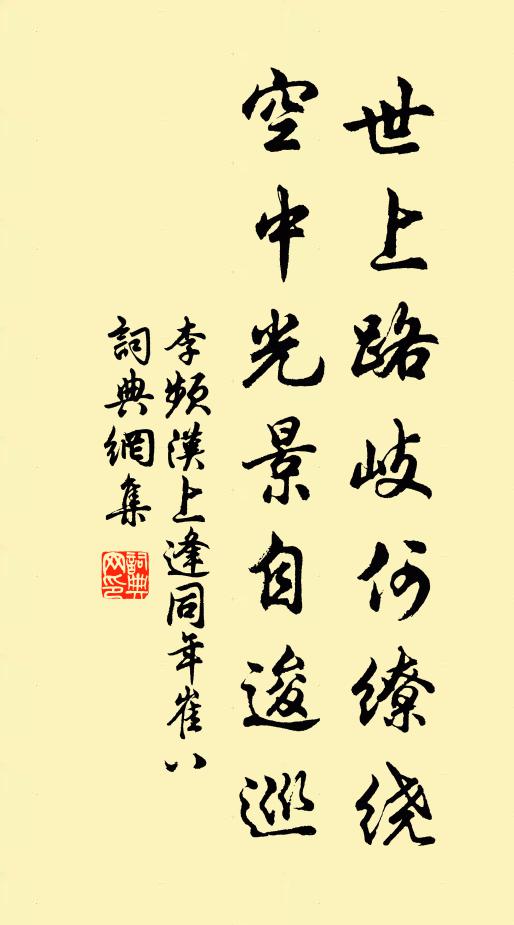 世上路岐何缭绕
空中光景自逡巡
李频漢上逢同年崔八
詞典網集
詞典網印